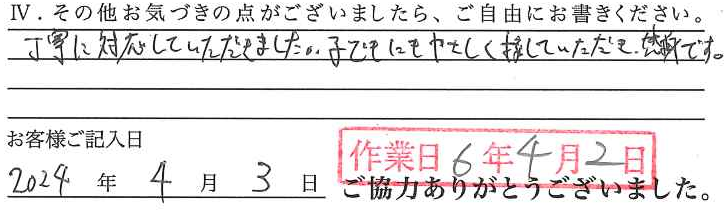 Ⅳ．その他お気づきの点がございましたら、ご自由にお書きください。
丁寧に対応していただきました。子どもにもやさしく接していただき、感謝です。
お客様ご記入日
2024 年 4 月 3 日
作業日 6年4月2日
ご協力ありがとうございました。